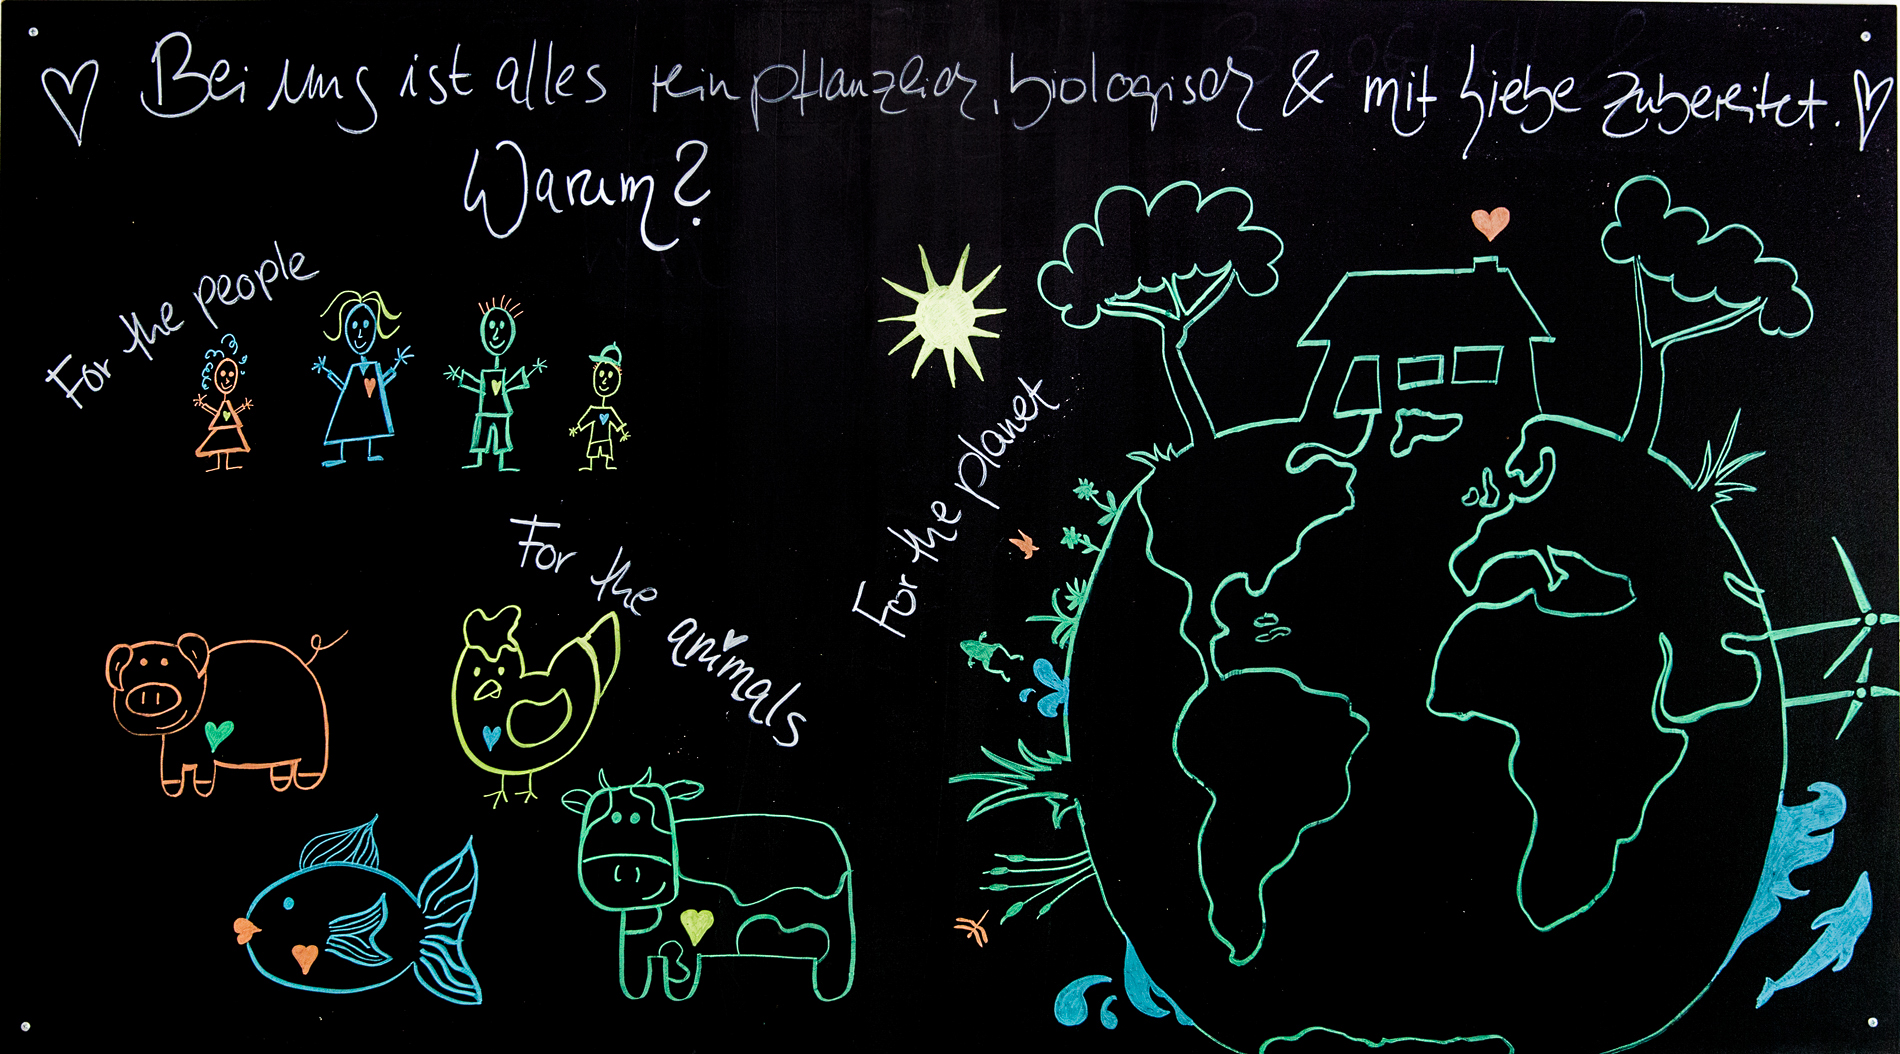 Bei uns ist alles rein pflanzlich, biologisch & mit Liebe zubereitet.
Warum?
For the people
For the animals
For the planet